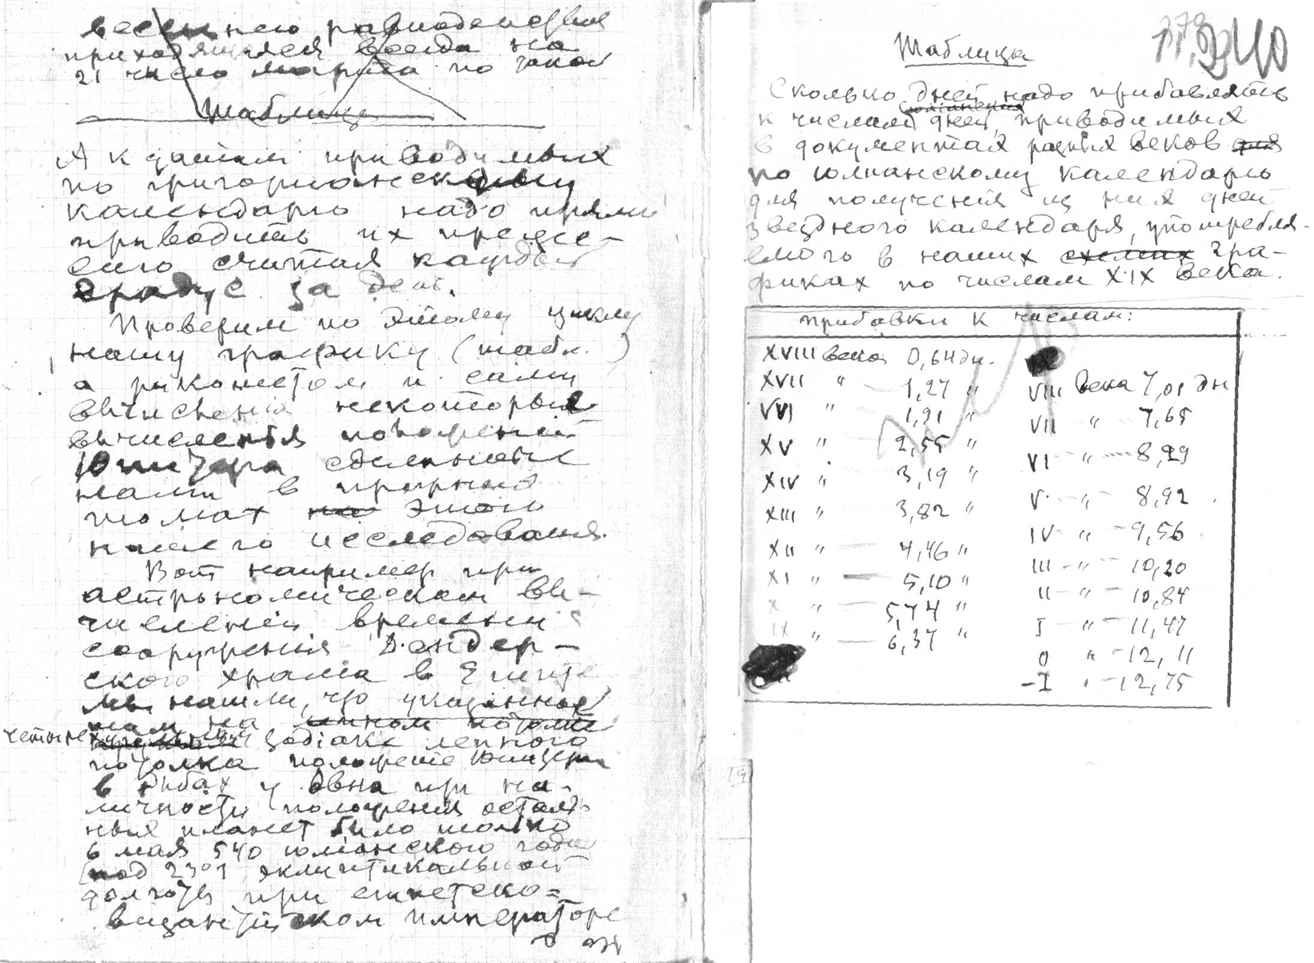 весеннего равноденствия
приходящегося всегда на
21 число марта по такой
Таблица
А к датам приводимых
по григорианскому
календарю надо прямо
приводить их
считая каждый
градус за день.
Проверим по этому циклу
нашу графику (табл. )
а и сами
вычисления некоторые
вычисления положений
Юпитера сделанные
нами в
томах на этого
нашего исследования.
Вот например при
астрономическом вы-
числении времени
сооружения Дендер-
ского храма в Египте
мы нашли, что указанное
там на потолке
четырех зодиака лепного
потолка положение Юпитера
в Рыбах у Овна при на-
личности положения осталь-
ных планет было только
6 мая 540 юлианского года
под 23°1 эклиптикальной
долготы при египетско=
византийском императоре
Таблица
178
340
Сколько дней надо прибавлять
юлианских
к числам дней, приводимых
в документах разных веков для
по юлианскому календарю
для получения из них дней
звездного календаря, употребля-
емого в наших схемах гра-
фиках по числам XIX века.
Прибавки к числам:
XVIII века 0,64 дн.
XVII " — 1,27 "
XVI " 1,91 "
XV " 2,55 "
XIV " 3,19 "
XIII " 3,82 "
XII " — 4,46 "
XI " — 5,10 "
X " — 5,74 "
IX " — 6,37 "
VIII века 7,01 дн
VII " 7,65
VI " — 8,29
V " - 8,92
IV - " - 9,56
III - " - 10,20
II - " - 10,84
I " - 11,47
0 " - 12,11
-I " - 12,75
19